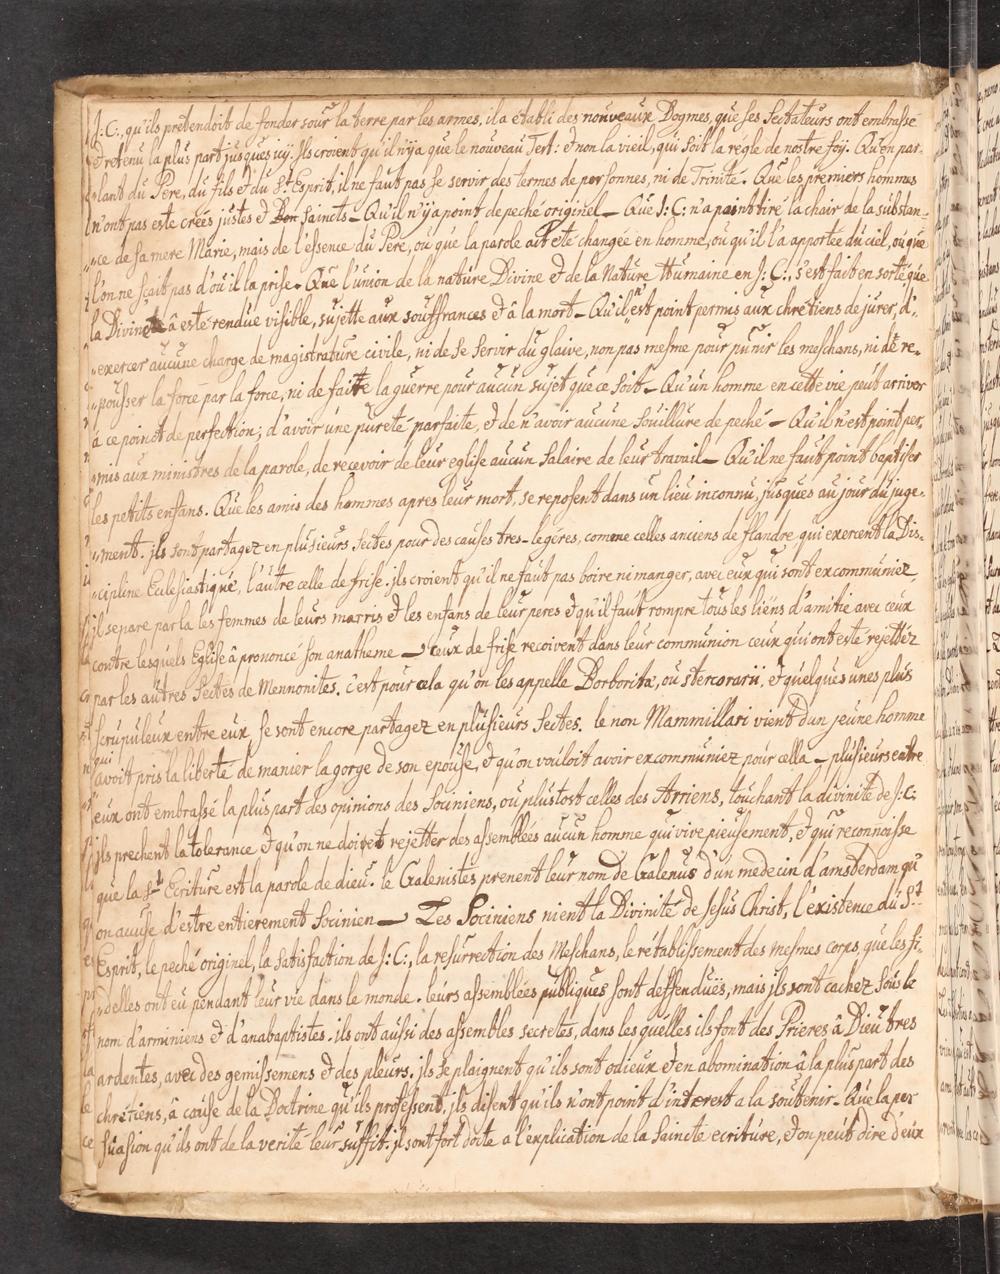 J: C., qu'ils prétendoit de fonder sour la terre par les armes, il a établi des nouveaux Dogmes, que ses Sectateurs ont embrasse
et retenu la plus part jusques icy. Ils croient qu'il n'ÿ a que le nouveau Test: et non la vieil, qui soit la régle de nostre foÿ. Qu'en par-
„lant du Pére, du fils et du St. Esprit, il ne faut pas se servir des termes de personnes, ni de Trinité. Que les premiers hommes
n'ont pas este crées justes et Saincts – Qu'il n'ÿ a point de peché originel – Que J: C: n'a point tiré la chair de la substan-
„ce de sa mere Marie, mais de l'essence du Pére, ou que la parole ait été changée en homme, ou qu'il l'a apportée du ciel, ou que
l'on ne sçait pas d'où il la prise – Que l'union de la nature Divine et de la Nature Humaine en J: C:, s'est fait en sorte que
la Divinité â esté rendue visible, sujette aux souffrances et â la mort – Qu'il n'est point permis aux chrétiens de jurer, d'-
„exercer aucune charge de magistrature civile, ni de se servir du glaive, non pas mesme pour punir les meschans, ni de re-
„pousser la force par la force, ni de faitte la guerre pour aucun sujet que ce soit – Qu'un homme en cette vie peut arriver
á ce poinct de perfection; d'avoir une pureté parfaite, et de n'avoir aucune souillure de peché – Qu'il n'est point per-
„mis aux ministres de la parole, de recevoir de leur eglise aucun salaire de leur travail – Qu'il ne faut point baptiser
les petits enfans. Que les amis des hommes apres leur mort, se reposent dans un lieu inconnu, jusques au jour du juge-
„ment. jls sont partagez en plusieurs sectes pour des causes tres-legéres, comme celles anciens de flandre qui exercent la Dis-
„cipline Eclesiastique, l'autre celle de frise. jls croient qu'il ne faut pas boire ni manger, avec eux qui sont excommuniez,
jl separe par la les femmes de leurs marris et les enfans de leur peres et qu'il faut rompre tous les liens d'amitie avec ceux
contre lesquels Eglise â prononcé son anatheme – ceux de frise recoivent dans leur communion ceux qui ont esté rejettéz
par les autres Sectes de Mennonites, c'est pour cela qu'on les appelle Borboritæ, ou stercorarii, et quelques unes plus
scrupuleux entre eux se sont encore partagez en plusieurs sectes. le non Mammillari vient d'un jeune homme
qui
avoit pris la liberté de manier la gorge de son epouse, et qu'on vouloit avoir excommuniez pour cella – plusieurs entre
eux ont embrassé la plus part des opinions des Sociniens, ou plustost celles des Arriens, touchant la divinité de J: C:
jls prechent la tolerance et qu'on ne doivet rejetter des assemblées aucun homme qui vive pieusement, et qui reconnoisse
que la Ste Ecriture est la parole de dieu. le Galenistes prenent leur nom de Galenus d'un medecin d'amsterdam qu'
on accuse d'estre entierement Socinien – Les Sociniens nient la Divinité de Jesus Christ, l'existence du St.
Esprit, le peché originel, la satisfaction de J: C:, la resurrection des Meschans, le rétablissement des mesmes corps, que les fi-
„delles ont eu pendant leur vie dans le monde. leurs assemblées publiques sont deffenduës, mais jls sont cachez sous le
nom d'arminiens et d'anabaptistes. ils ont aussi des assembles secretes, dans les quelles ils font des Prieres â Dieu tres
ardentes, avec des gemissemens et des pleurs. jls se plaignent qu'ils sont odieux et en abomination â la plus part des
chrétiens, â cause de la Doctrine qu'ils professent, jls disent qu'ils n'ont point d'interest a la soutenir – Que la per
suasion qu'ils ont de la verité leur suffit. jl sont fort docte a l'explication de la saincte ecriture, et on peut dire d'eux